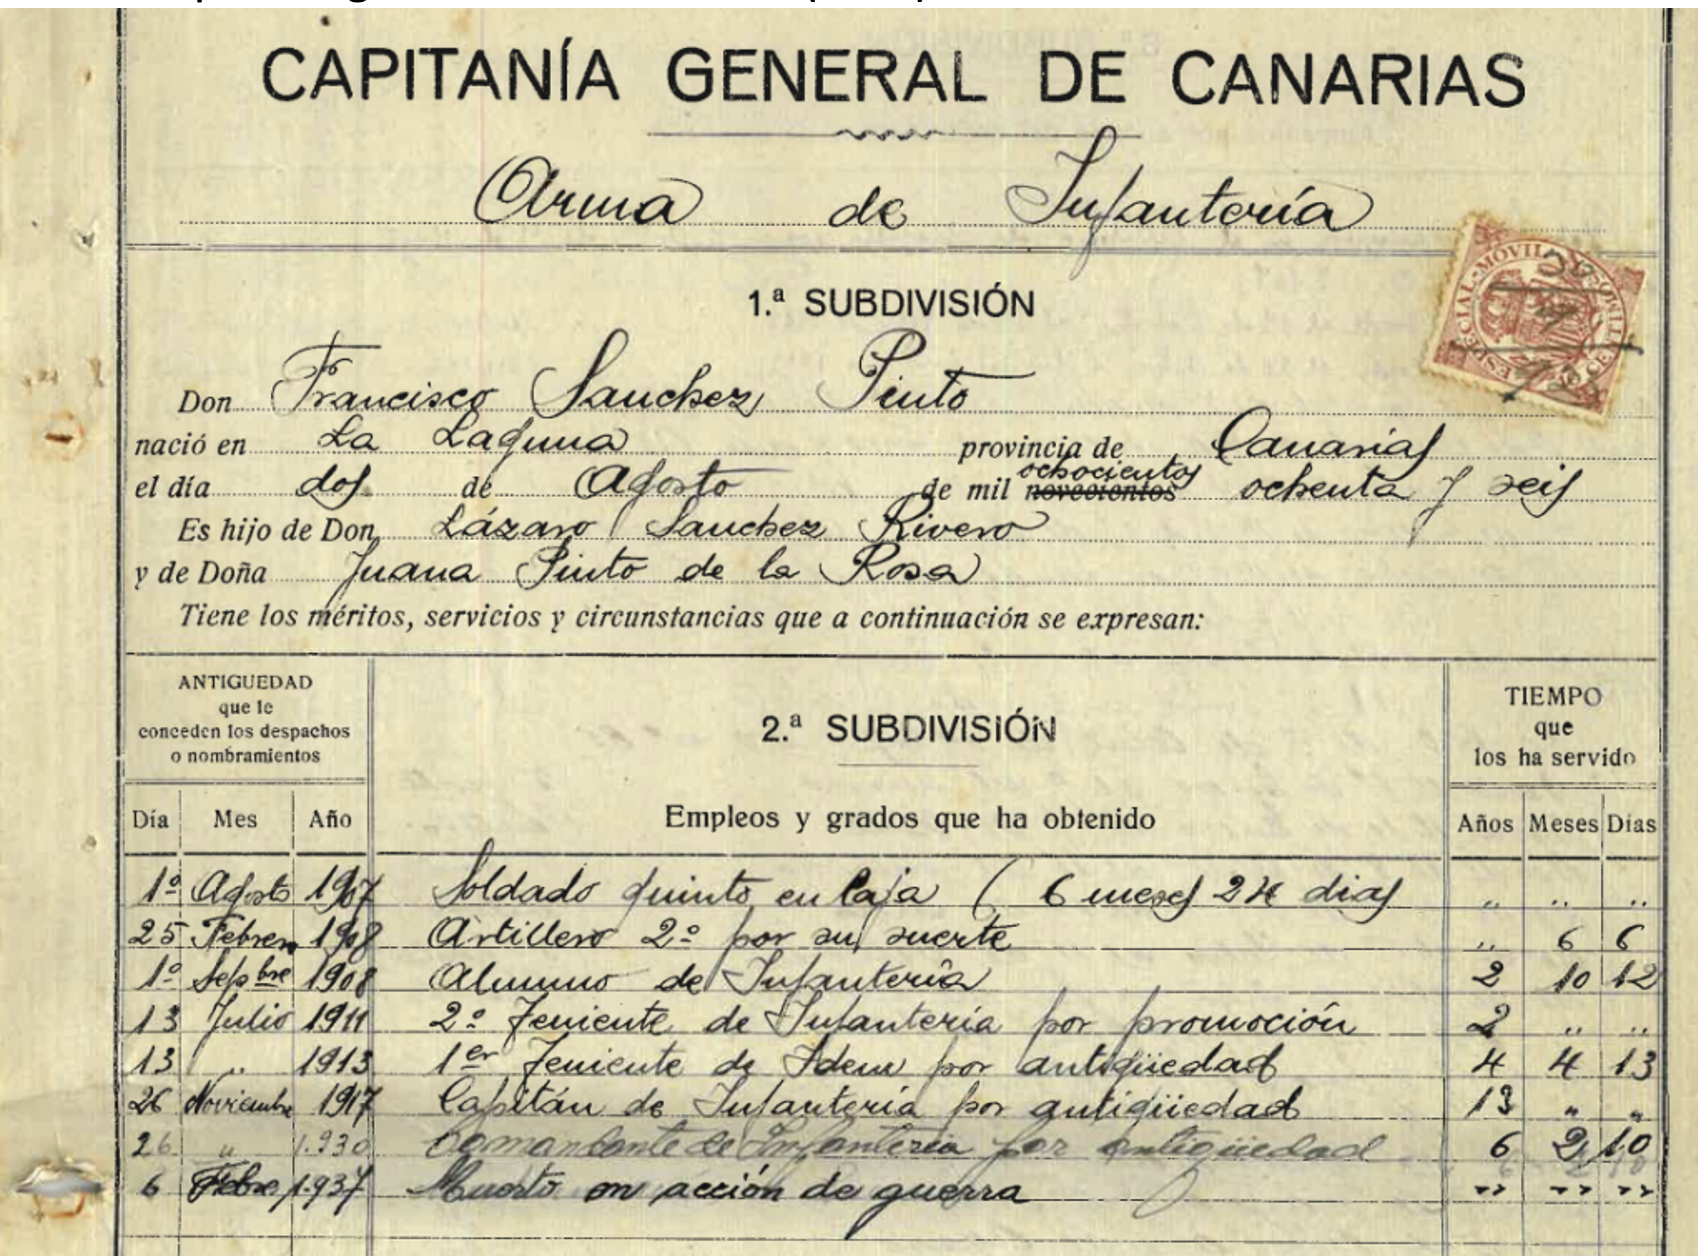 CAPITANÍA GENERAL DE CANARIAS
Arma de Infantería
ESPECIAL MÓVIL
1.ª SUBDIVISIÓN
Don Francisco Sanchez Pinto
nació en La Laguna provincia de Canarias
ochocientos
el día dos de Agosto de mil novecientos ochenta y seis
Es hijo de Don Lázaro Sanchez Rivero
y de Doña Juana Pinto de la Rosa
Tiene los méritos, servicios y circunstancias que a continuación se expresan:
ANTIGUEDAD
que le
conceden los despachos
o nombramientos
2.ª SUBDIVISIÓN
TIEMPO
que
los ha servido
Día Mes Año Empleos y grados que ha obtenido Años Meses Días
1º Agosto 1907 Soldado quinto en Caja ( 6 meses 24 dias " " "
25 Febrero 1908 Artillero 2º por su suerte " 6 6
1º Sepbre 1908 Alumno de Infantería 2 10 12
13 Julio 1911 2º Teniente de Infantería por promoción 2 " "
13 " 1913 1er Teniente de Idem por antigüedad 4 4 13
26 Noviembre 1917 Capitán de Infantería por antigüedad 13 " "
26 " 1.930 Comandante de Infantería por antigüedad 6 2 10
6 Febro 1.937 Muerto en acción de guerra " " "